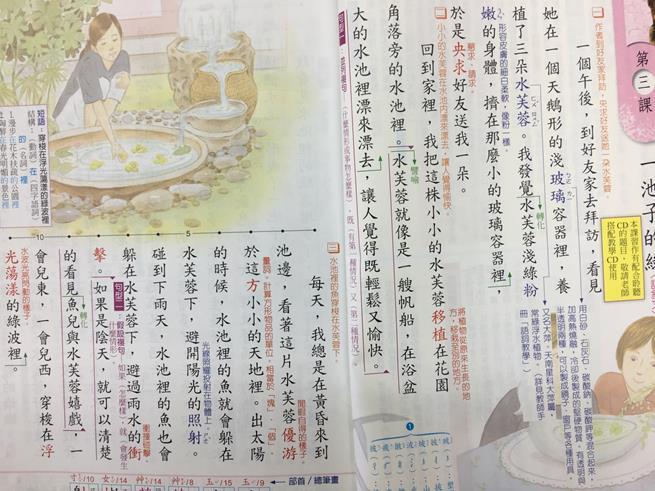 第三課
一池子的綠
本課習作有配合聆聽
CD的題目,敬請老師
搭配教學CD使用
一 作者到好友家拜訪,央求好友送她一朵水芙蓉。
一個午後,到好友家去拜訪,看見
她在一個天鵝形的淺玻璃容器裡,養
植了三朵水芙蓉。我發覺水芙蓉淺綠粉
轉化
形容皮膚的細白柔軟,像粉一樣。
嫩的身體,擠在那麼小的玻璃容器裡,
懇求、請求。
於是央求好友送我一朵。
二 小小的水芙蓉在水池內漂來漂去,讓人覺得愉快。
回到家裡,我把這株小小的水芙蓉移植在花園
將植物從原來生長的地
方,移栽至別的地方。
角落旁的水池裡。水芙蓉就像是一艘帆船,在浴盆
譬喻
大的水池裡漂來漂去,讓人覺得既輕鬆又愉快。
句型一
並列複句:(什麼情形或事物怎麼樣),既(有第一種情況)又(第二種情況)。
用白砂、石灰石、碳酸鈉、碳酸鉀等混合起來,
加高熱燒融,冷卻後製成的堅硬物質,有透明與
半透明兩種,可以製成鏡子、窗戶等各種用具
又名大萍,天南星科大萍屬
常綠浮水植物。(詳見教師手
冊「語詞教學」)
三 水池裡的魚穿梭在水芙蓉下。
每天,我總是在黃昏來到
池邊,看著這片水芙蓉優游
閒暇自得的樣子。
量詞。計算方形物品的單位,相當於「塊」、「個」。
於這方小小的天地裡。出太陽
的時候,水池裡的魚就會躲在
水芙蓉下,避開陽光的照射。
光線照耀投射在物體上。
碰到下雨天,水池裡的魚也會
躲在水芙蓉下,避過雨水的衝
衝撞碰擊
擊。如果是陰天,就可以清楚
句型二
假設複句:如果(怎麼樣),就(會發生
什麼情形)。
的看見魚兒與水芙蓉嬉戲,一
轉化
會兒東,一會兒西,穿梭在浮
光蕩漾的綠波裡。
水波光影閃動的樣子。
短語:穿梭在浮光蕩漾的綠波裡
結構:(動詞)在(四字語詞)
的(名詞)裡
1.漫步在花木扶疏的公園裡
5
10
部首/總筆畫